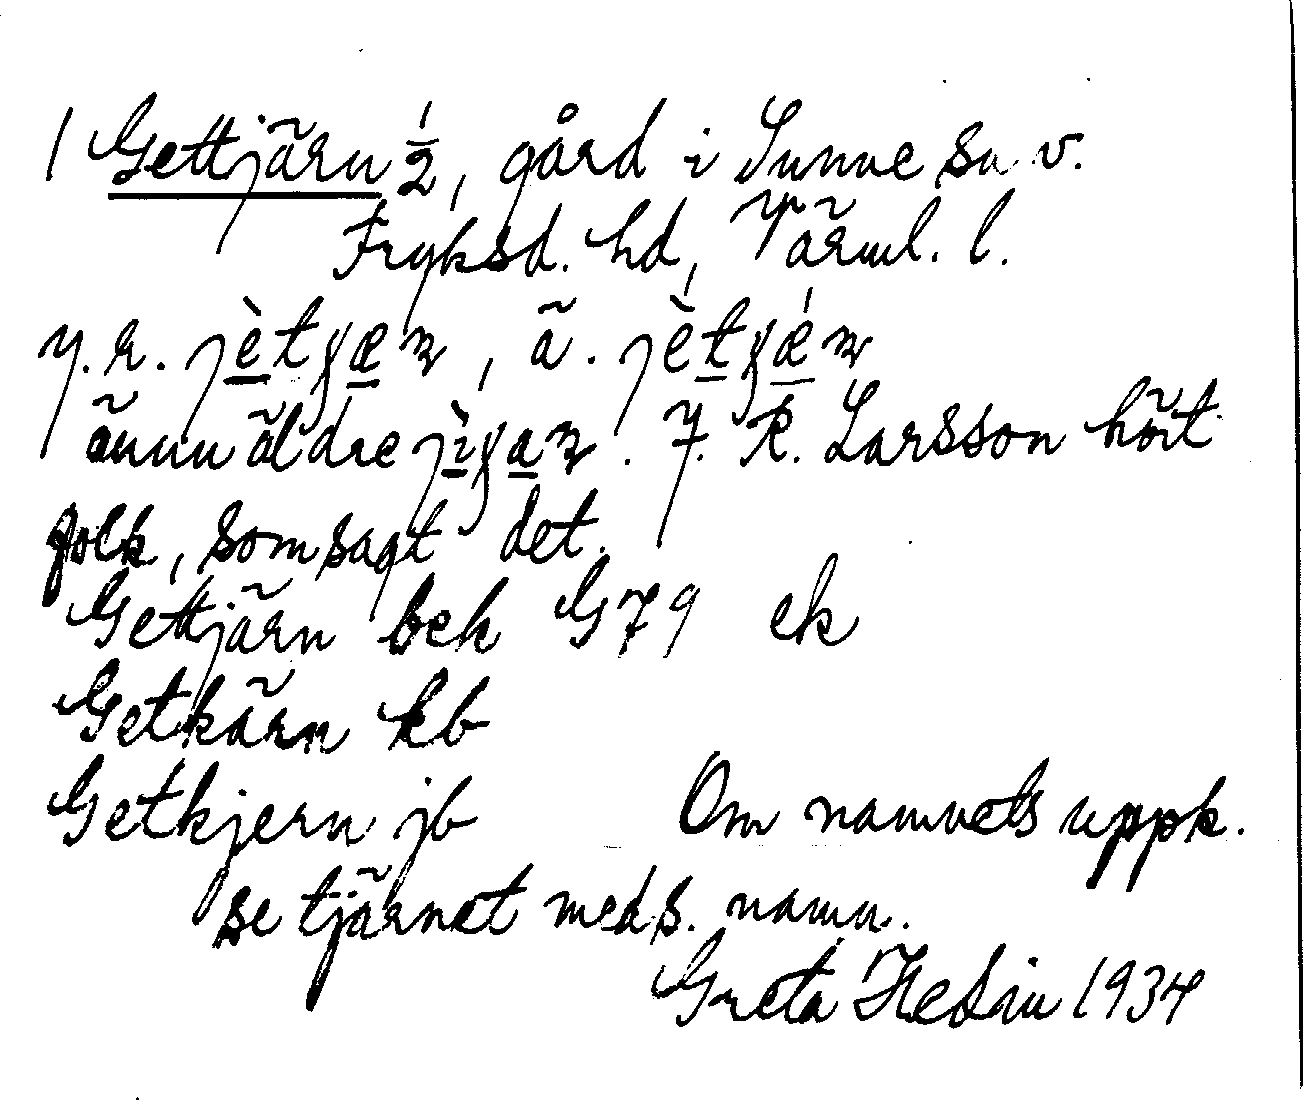 1 Gettjärn 1/2, gård i Sunne sn v.
Fryksd. hd, Värml. l.
y.r. jètʃæɳ, ä. jètʃǽɳ
ännu äldre jìʃaɳ. J. R. Larsson hört
folk, som sagt det.
Gettjärn bek G79 ek
Getkärn kb
Getkjern jb Om namnets uppk.
se tjärnet med s. namn.
Greta Hedin 1934